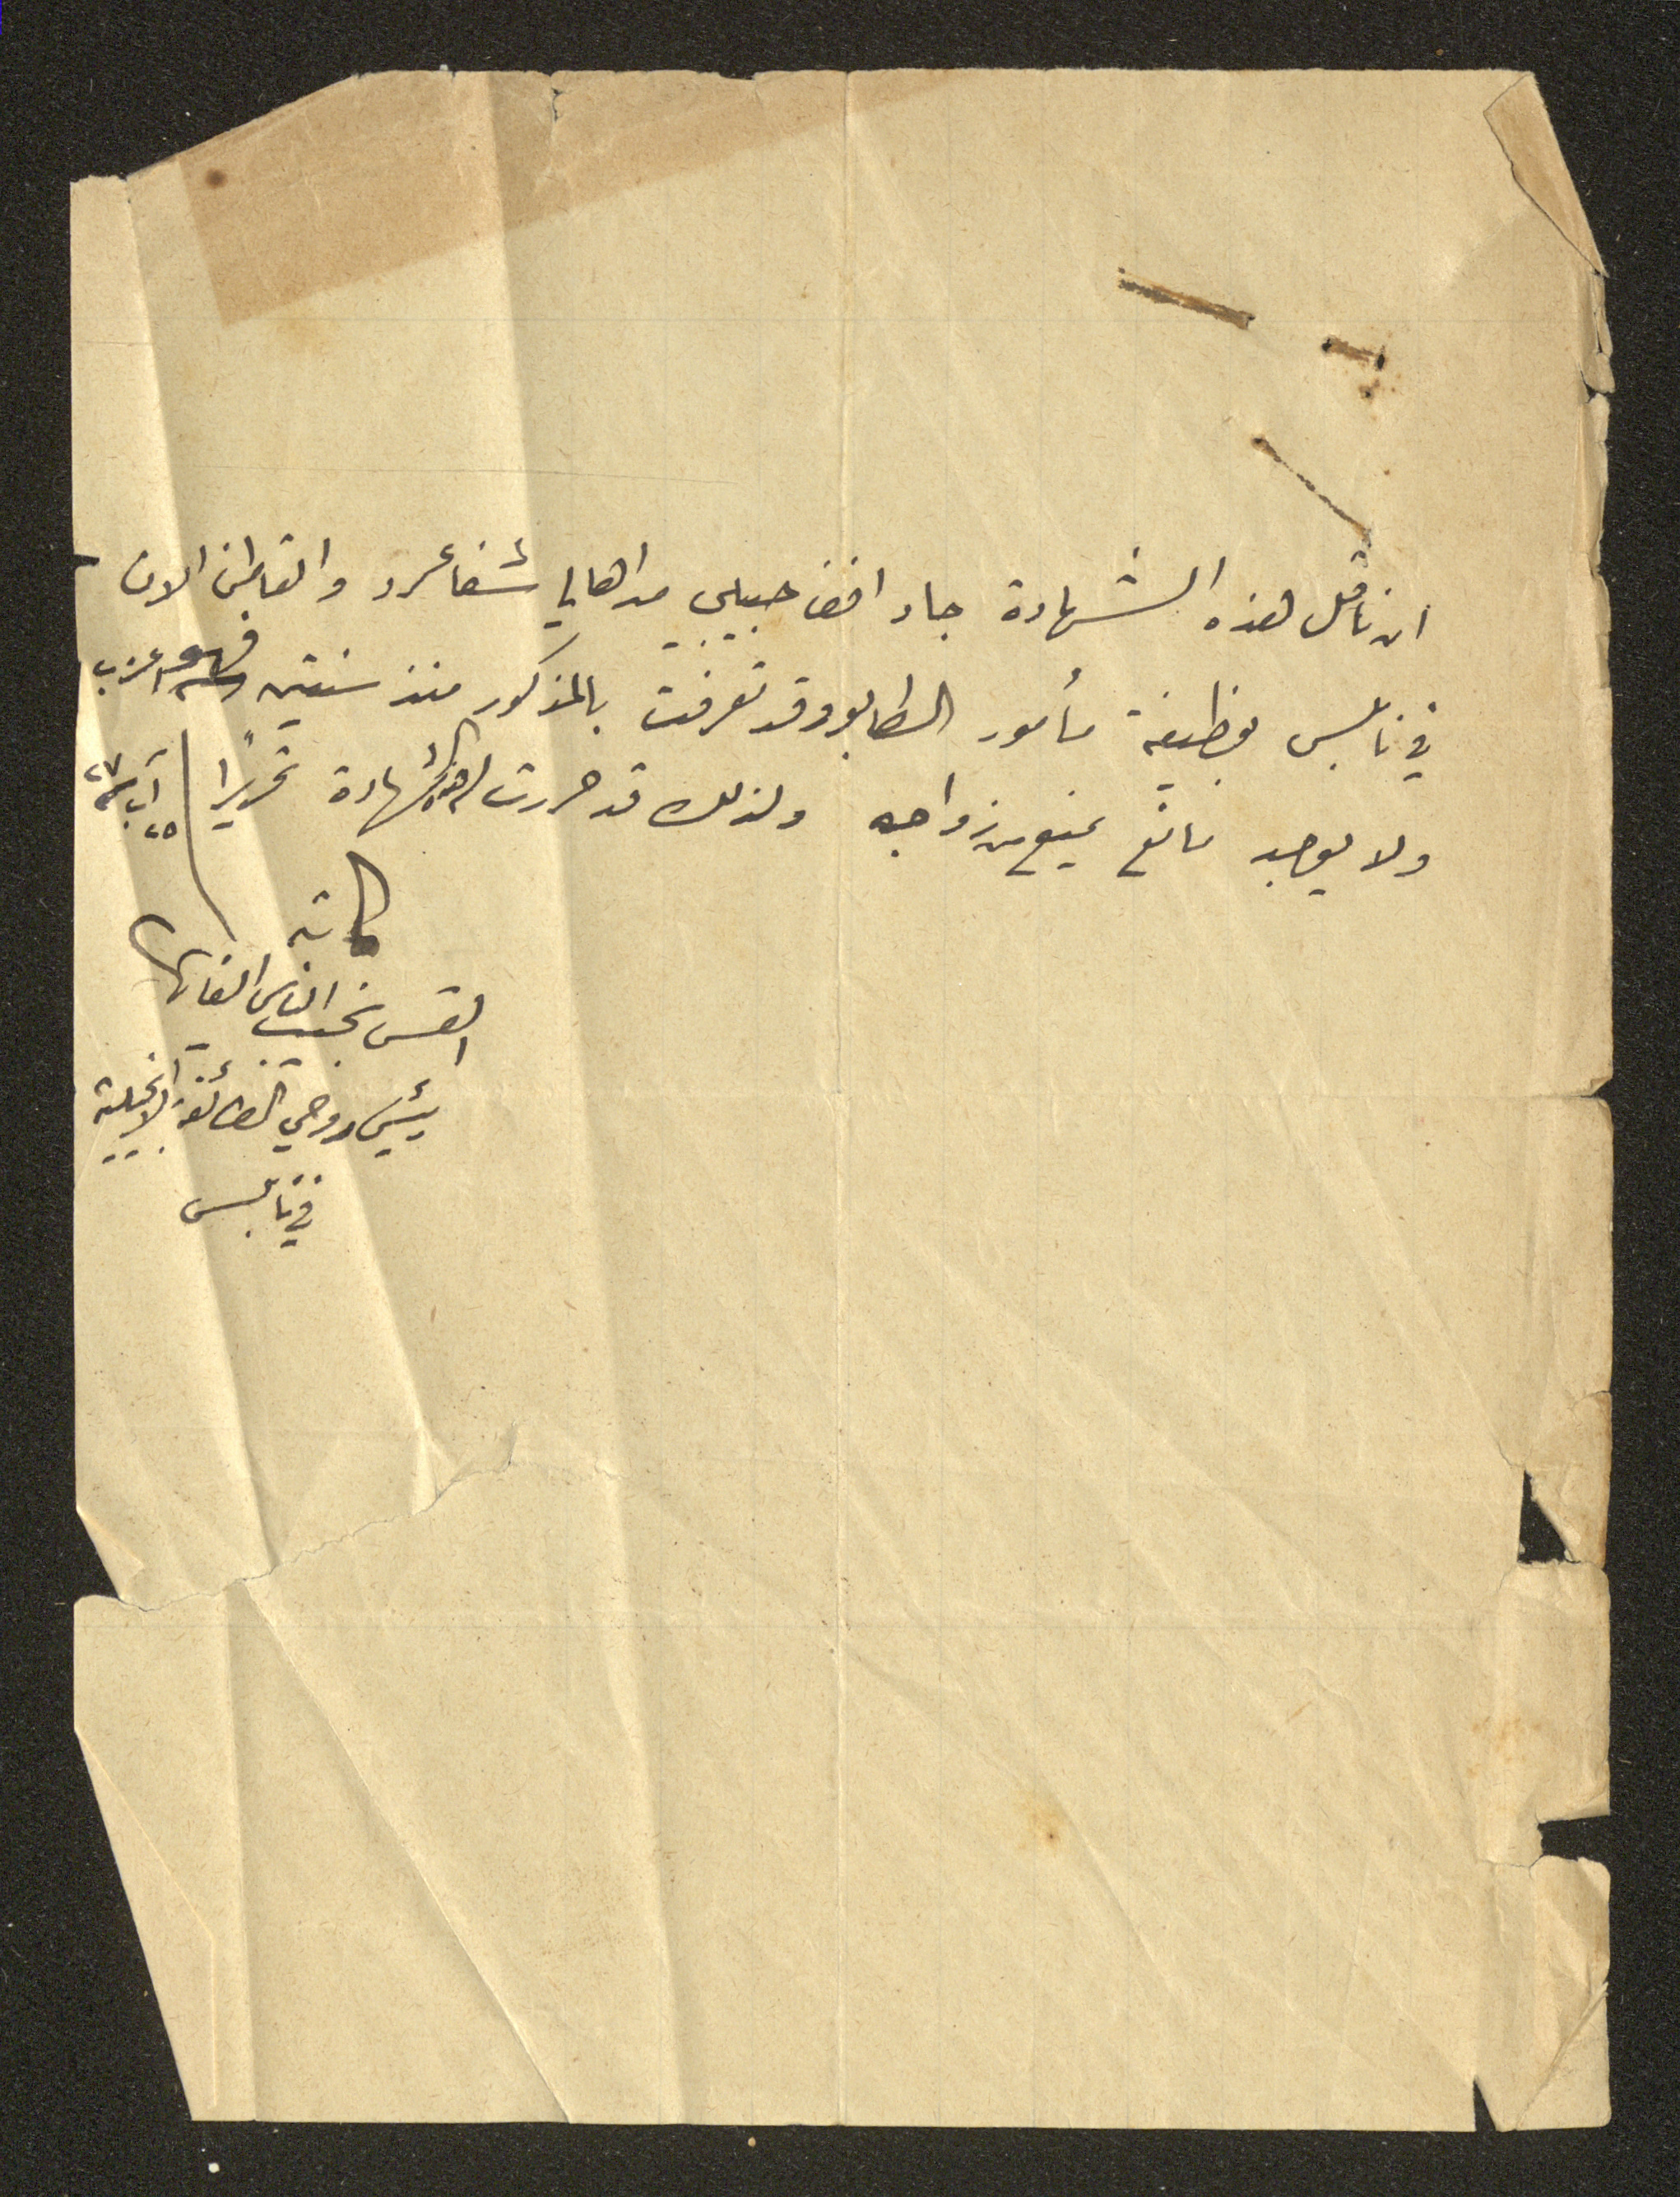 ان ناقل هذه الشهادة جاد افندي حبيبي من اهالي شفاعمرو والقاطن الان
في نابلس بوظيفة مأمور الطابو وقد تعرفت بالمذكور منذ سنتين فهو اعزب
ولا يوجد مانع يمنع من زواجه ولذلك قد حررت له هذه الشهادة تحريرًا ٢٥ آب سنة ٢٧
كاتبه
القس نجيب الياس
رئيس روحي الطائفة الانجيلية
في نابلس